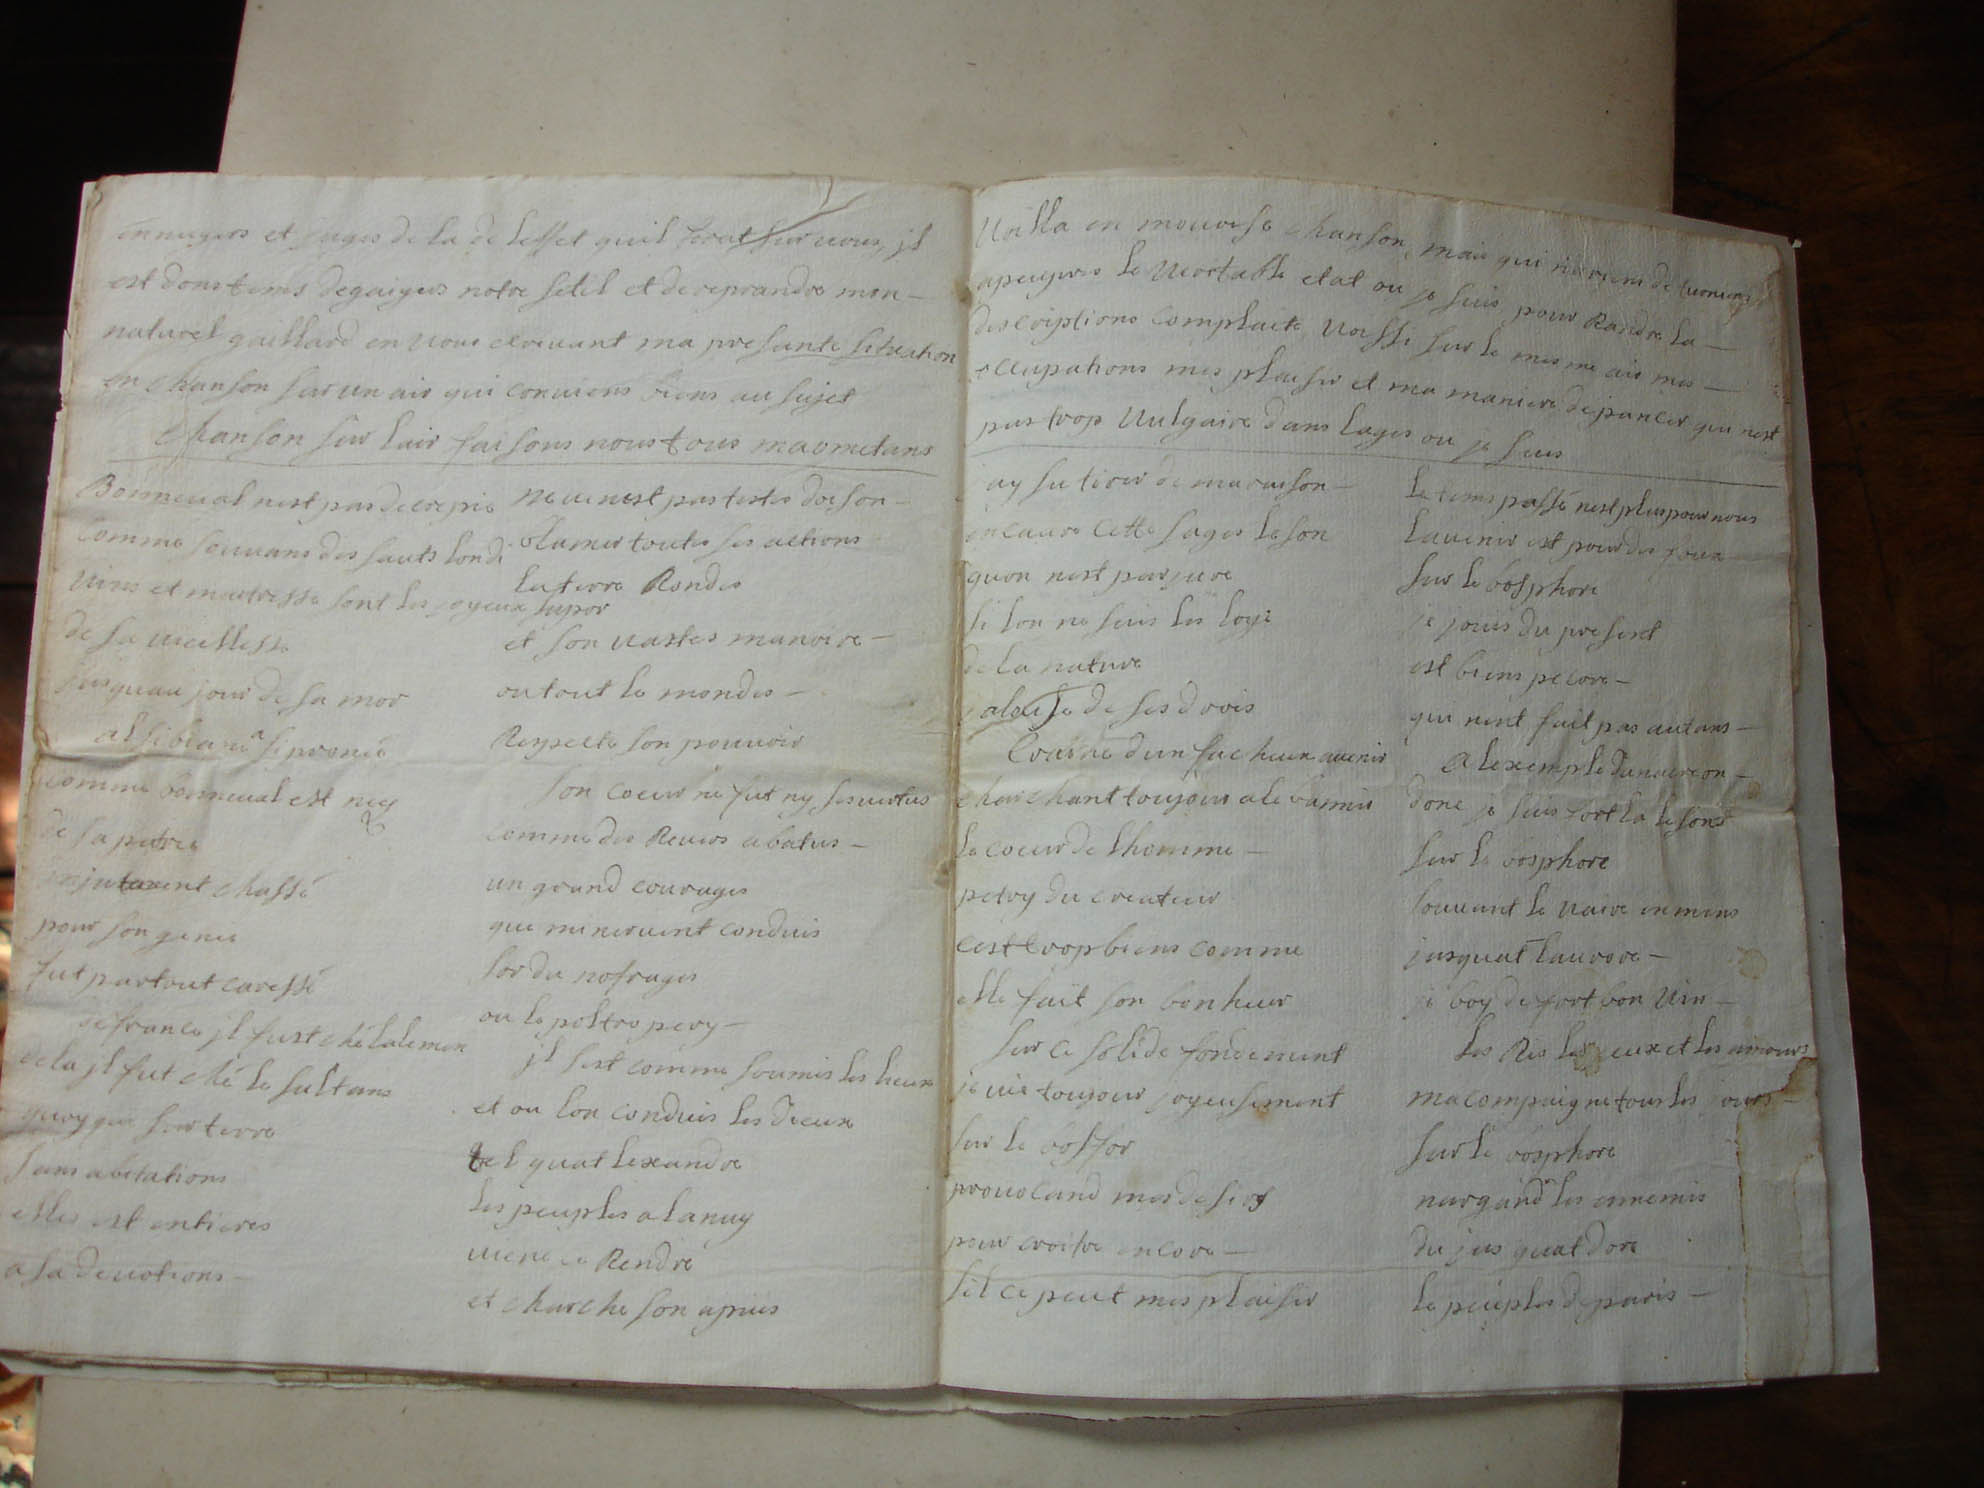 ennuyers et juges de la de leffet quil ferat sur vous, jl
est dons tems degaigers notre stil et dereprandre mon
naturel gaillard en vous ecrivant ma presante situation
en chanson sur un air qui conviens biens au sujet
chanson sur lair faisons nous tous maometans
Bonneval nest pas decrepis
comme souvans des sauts londi
vins et maitresse sont les joyeux supor
de sa vieillesse
jusquau jour de sa mor
alsibiane si pronée
comme bonneval est nay
de sa patrie
injutement chassé
pour son genie
fut partout caressé
de france jl fust ché lalemen
de la jl fut ché le sultans
quoy que sur terre
sans abitations
elles est entieres
a sa devotions
ne vienest pas testes doison
blamer toutes ses actions
la terre Rondes
et son vastes manoire
ou tout le mondes
Respecte son pouvoir
son coeur ne fut ny ses vertus
comme des Revers abatus
un grand courages
que minervent conduis
sor du nofrages
ou le poltro pery
jl sest comme soumis les lieux
et ou lon conduis les Dieux
tel quat lexandre
les peuples a lanvy
viene ce Rendre
et charche son apuis
Voilla en mouvese chanson mais qui
apeuyres le veortable etat ou je suis pour Randre la
descriptions complaite voissi sur le mesme air mes
occupations mes plaisir et ma maniere de pancer qui nest
pas trop vulgaire dans lages ou je suis
jay su tirer de ma raison
encaure cette sages leson
quon nest parjure
si lon ne suis les loye
de la nature
jalouse de ses drois
Courne dun facheux avenir
charchant toujour a le banir
le coeur de lhomme
petry du createur
cest trop biens comme
elle fait son bonheur
sur ce solide fondement
je vis toujour joyeusement
sur le bosfor
provocand mes desirs
pour croitre encore
sil ce peut mes plaisir
le tems passé nest plus pour nous
lavenir est pour des foux
sur le bosphore
je jouis du present
est biens pecore
qui nent fait pas autans
A lexemple danacreon
donc je suis fort la leson
sur le bosphore
souvant le vaire en mins
jusquat laurore
je boy de fort bon vin
les Ris les jeux et les amours
macompaigne tous les jours
sur le bosphore
nargand les ennemis
du jus quat dore
le peuples de paris